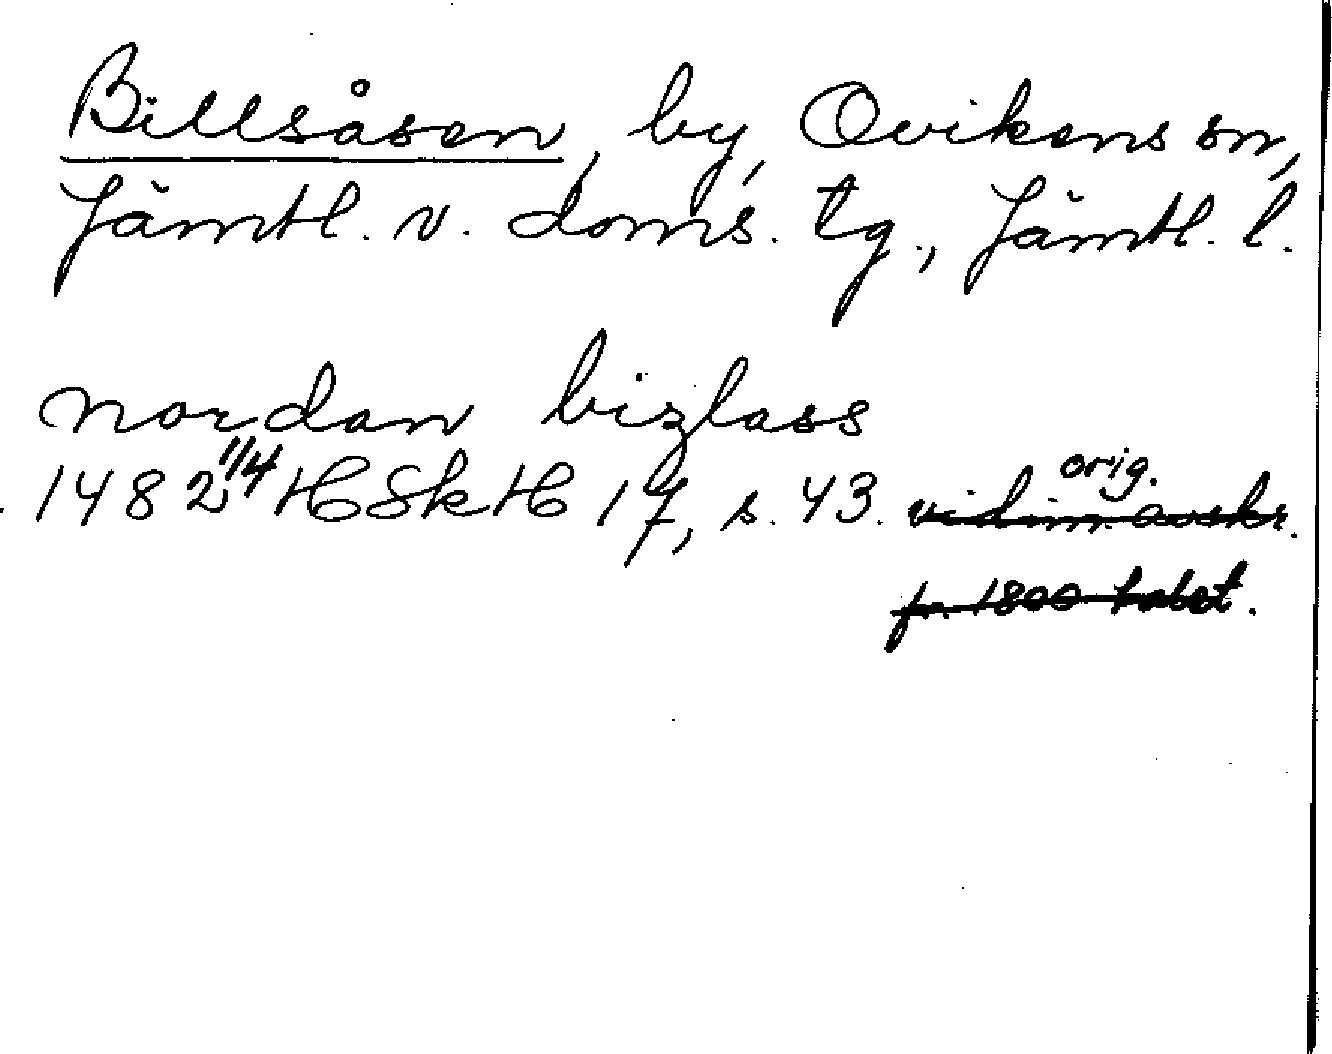 Billsåsen, by, Ovikens sn,
Jämtl. v. doms. tg., Jämtl. l.
nordan bizlass
1482 1/4 HSkH 17, s. 43. orig.
vidim. avskr.
fr. 1800 talet.